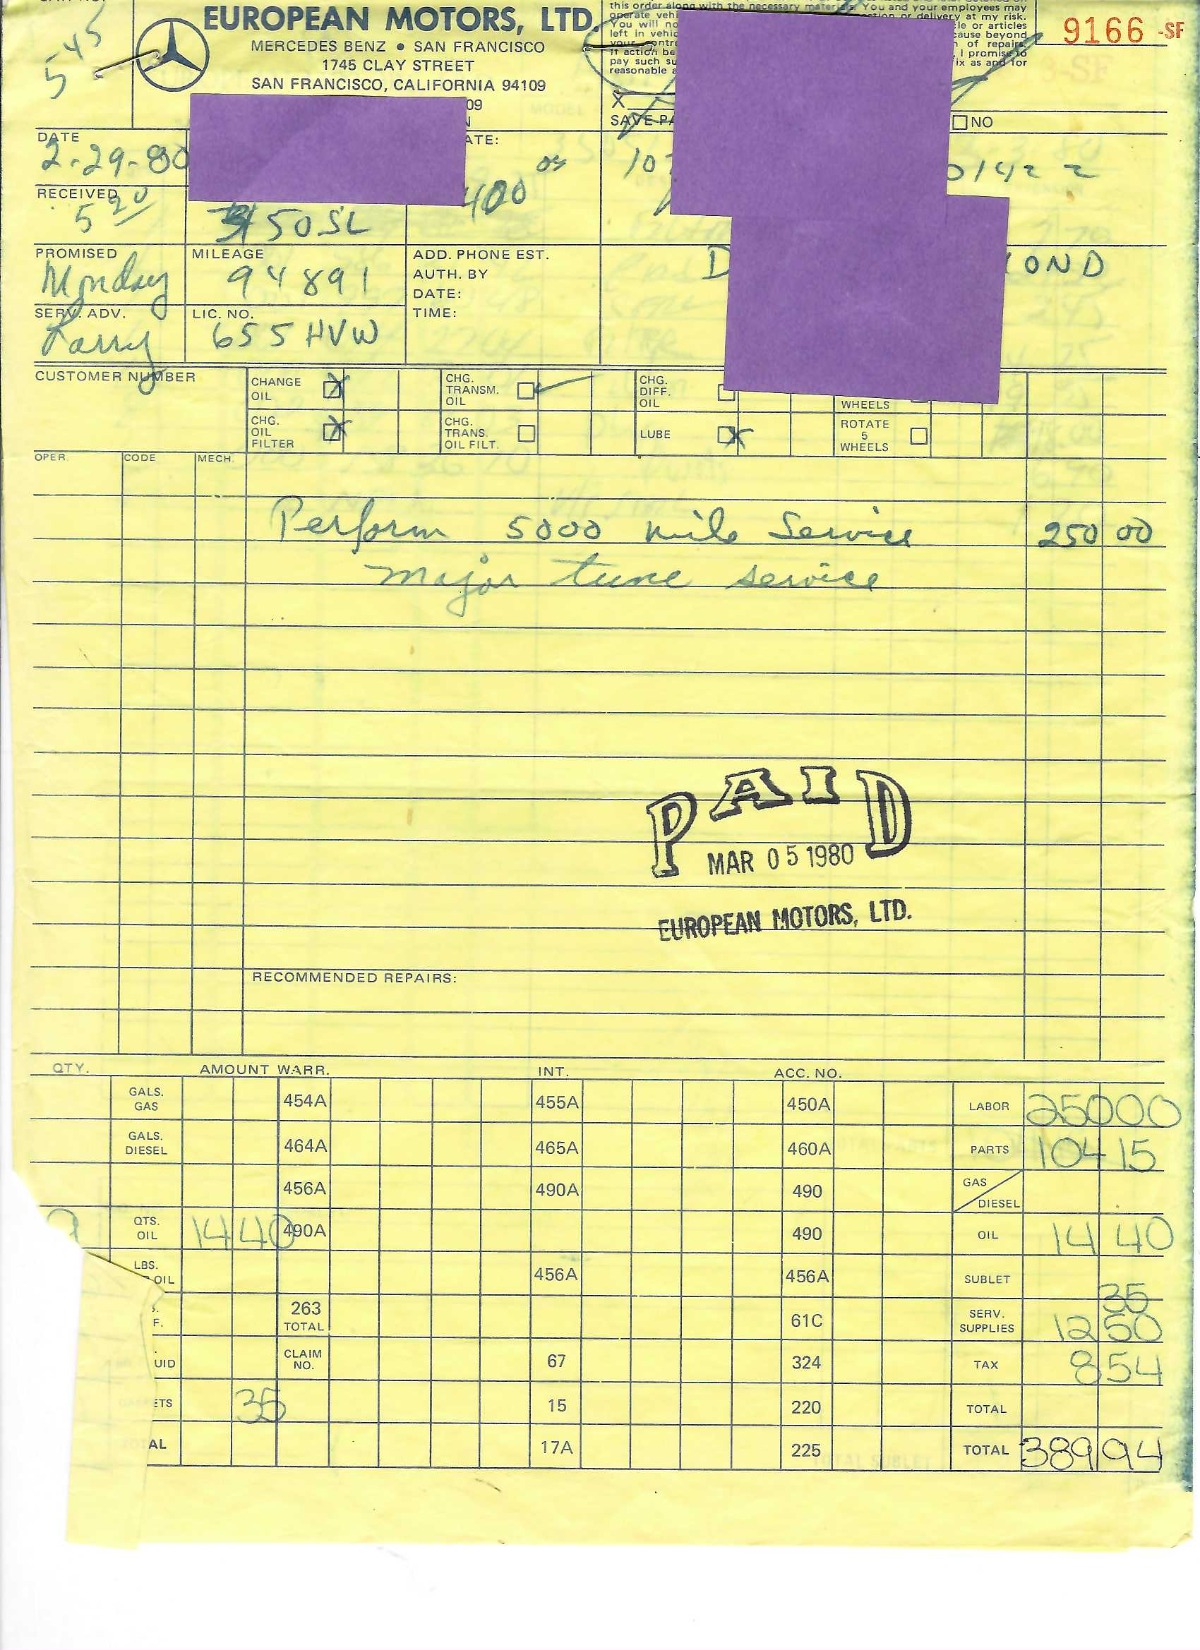 545
EUROPEAN MOTORS, LTD.
MERCEDES BENZ • SAN FRANCISCO
1745 CLAY STREET
SAN FRANCISCO, CALIFORNIA 94109
09
N
this order along with the necessary You and your employees may
operate vehi or delivery at my risk.
You will no le or articles
left in vehic cause beyond
your contr n of repairs.
if action be I promise to
pay such su ix as and for
reasonable a
9166 -SF
X
SAVE PA
NO
DATE
2-29-80
ATE:
400
01422
RECEIVED
5 20
350SL
PROMISED
Monday
MILEAGE
94891
ADD. PHONE EST.
AUTH. BY
DATE:
TIME:
D OND
SERV. ADV.
Larry
LIC. NO.
655HVW
CUSTOMER NUMBER
CHANGE OIL X
CHG. TRANSM. OIL
CHG. DIFF. OIL
WHEELS
CHG. OIL FILTER X
CHG. TRANS. OIL FILT.
LUBE X
ROTATE 5 WHEELS
OPER. CODE MECH.
Perform 5000 mile Service 250 00
Major tune service
PAID
MAR 05 1980
EUROPEAN MOTORS, LTD.
RECOMMENDED REPAIRS:
QTY. AMOUNT WARR. INT. ACC. NO.
GALS. GAS 454A 455A 450A LABOR 250 00
GALS. DIESEL 464A 465A 460A PARTS 104 15
456A 490A 490 GAS / DIESEL
QTS. OIL 14 40 490A 490 OIL 14 40
LBS. OIL 456A 456A SUBLET
35
F. 263 TOTAL 61C SERV. SUPPLIES 12 50
UID CLAIM NO. 67 324 TAX 8 54
ETS 35 15 220 TOTAL
AL 17A 225 TOTAL 389 94